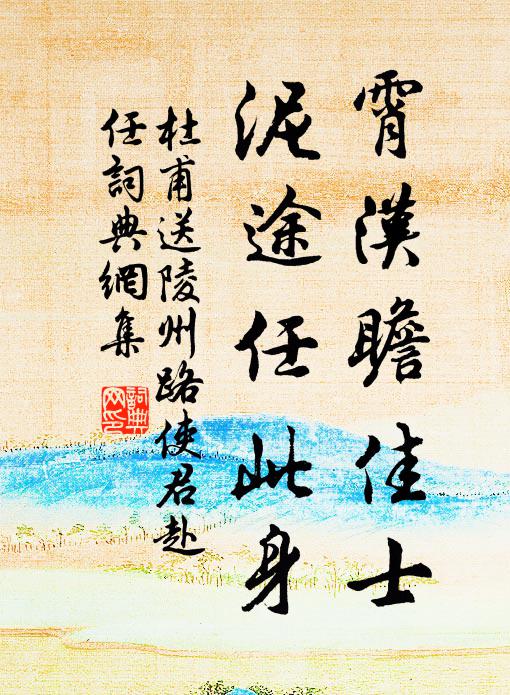 霄漢瞻佳士
泥途任此身
杜甫送陵州路使君赴
任詞典網集
詞典
網印